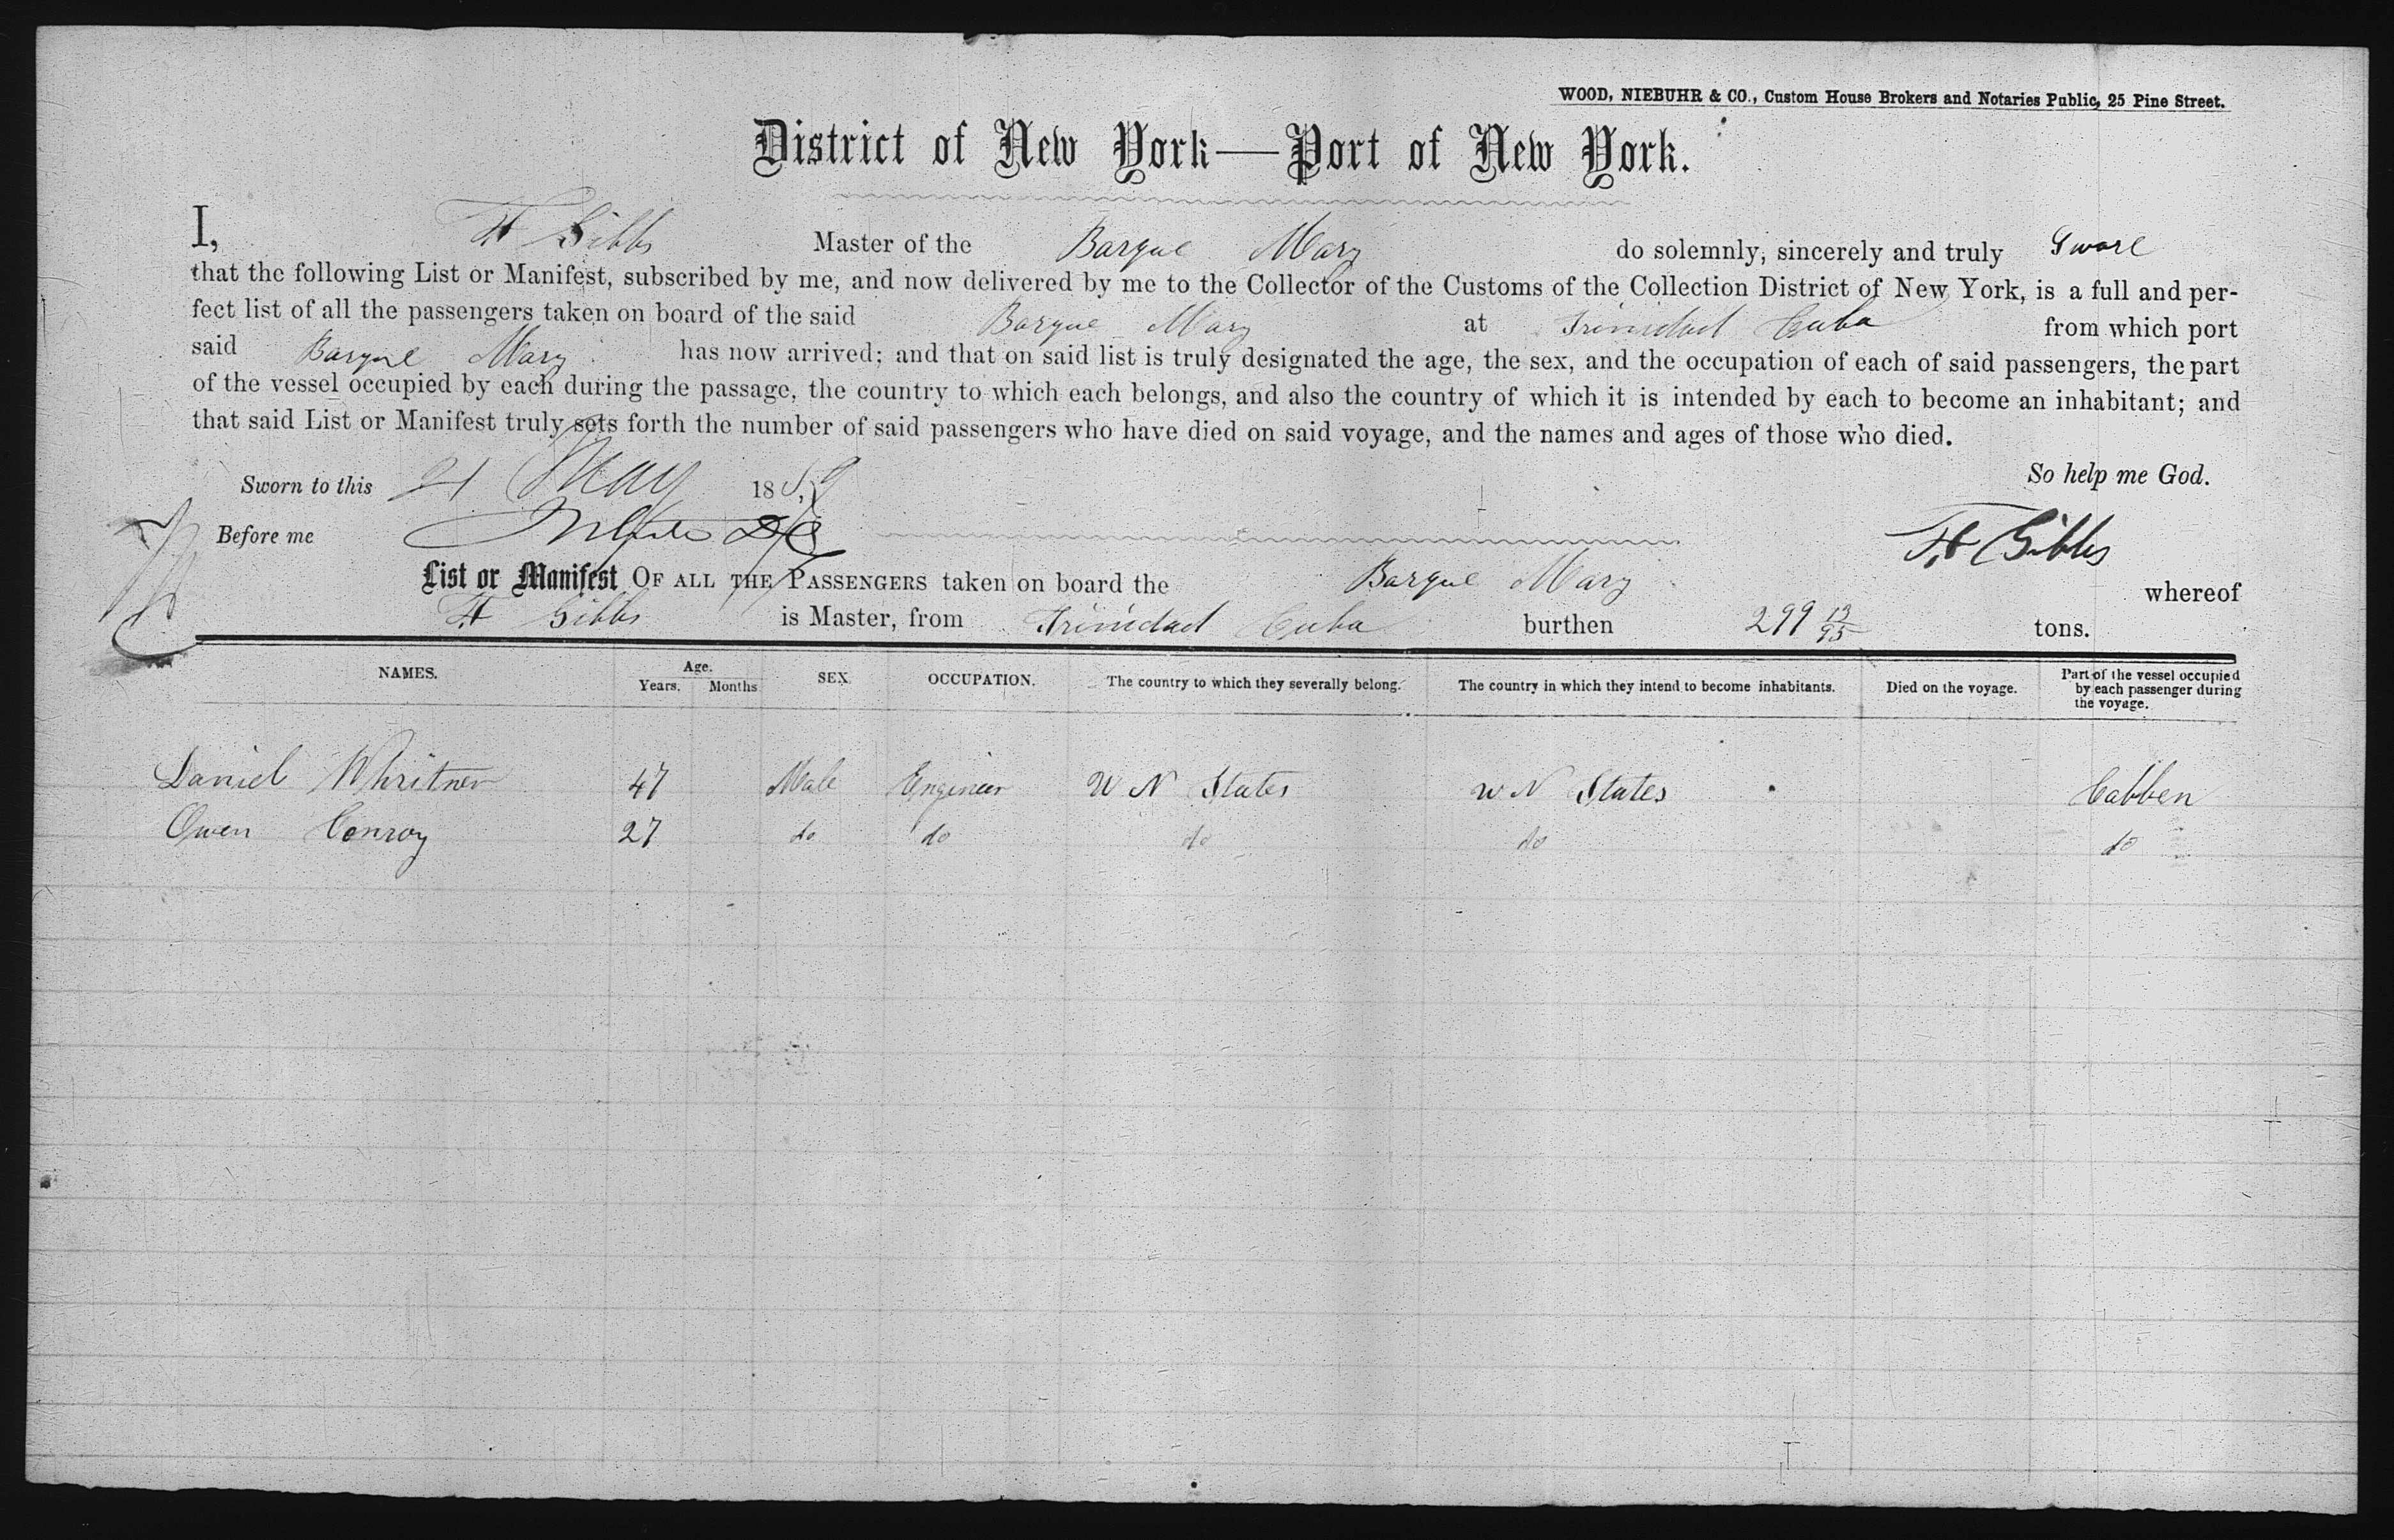 WOOD, NIEBUHR & CO., Custom House Brokers and Notaries Public, 25 Pine Street.
District of New York—Port of New York.
I, H Gibbs Master of the Barque Mary do solemnly, sincerely and truly Sware
that the following List or Manifest, subscribed by me, and now delivered by me to the Collector of the Customs of the Collection District of New York, is a full and per-
fect list of all the passengers taken on board of the said Barque Mary at Trinidad Cuba from which port
said Barque Mary has now arrived; and that on said list is truly designated the age, the sex, and the occupation of each of said passengers, the part
of the vessel occupied by each during the passage, the country to which each belongs, and also the country of which it is intended by each to become an inhabitant; and
that said List or Manifest truly sets forth the number of said passengers who have died on said voyage, and the names and ages of those who died.
So help me God.
Sworn to this 21 May 1859
Before me
H Gibbs
List or Manifest OF ALL THE PASSENGERS taken on board the Barque Mary whereof
H Gibbs is Master, from Trinidad Cuba burthen 299 13/95 tons.
NAMES. Age. Years. Months SEX. OCCUPATION. The country to which they severally belong. The country in which they intend to become inhabitants. Died on the voyage. Part of the vessel occupied by each passenger during the voyage.
Daniel Whritner 47 Male Engineer U N States U N States Cabben
Owen Conroy 27 do do do do do